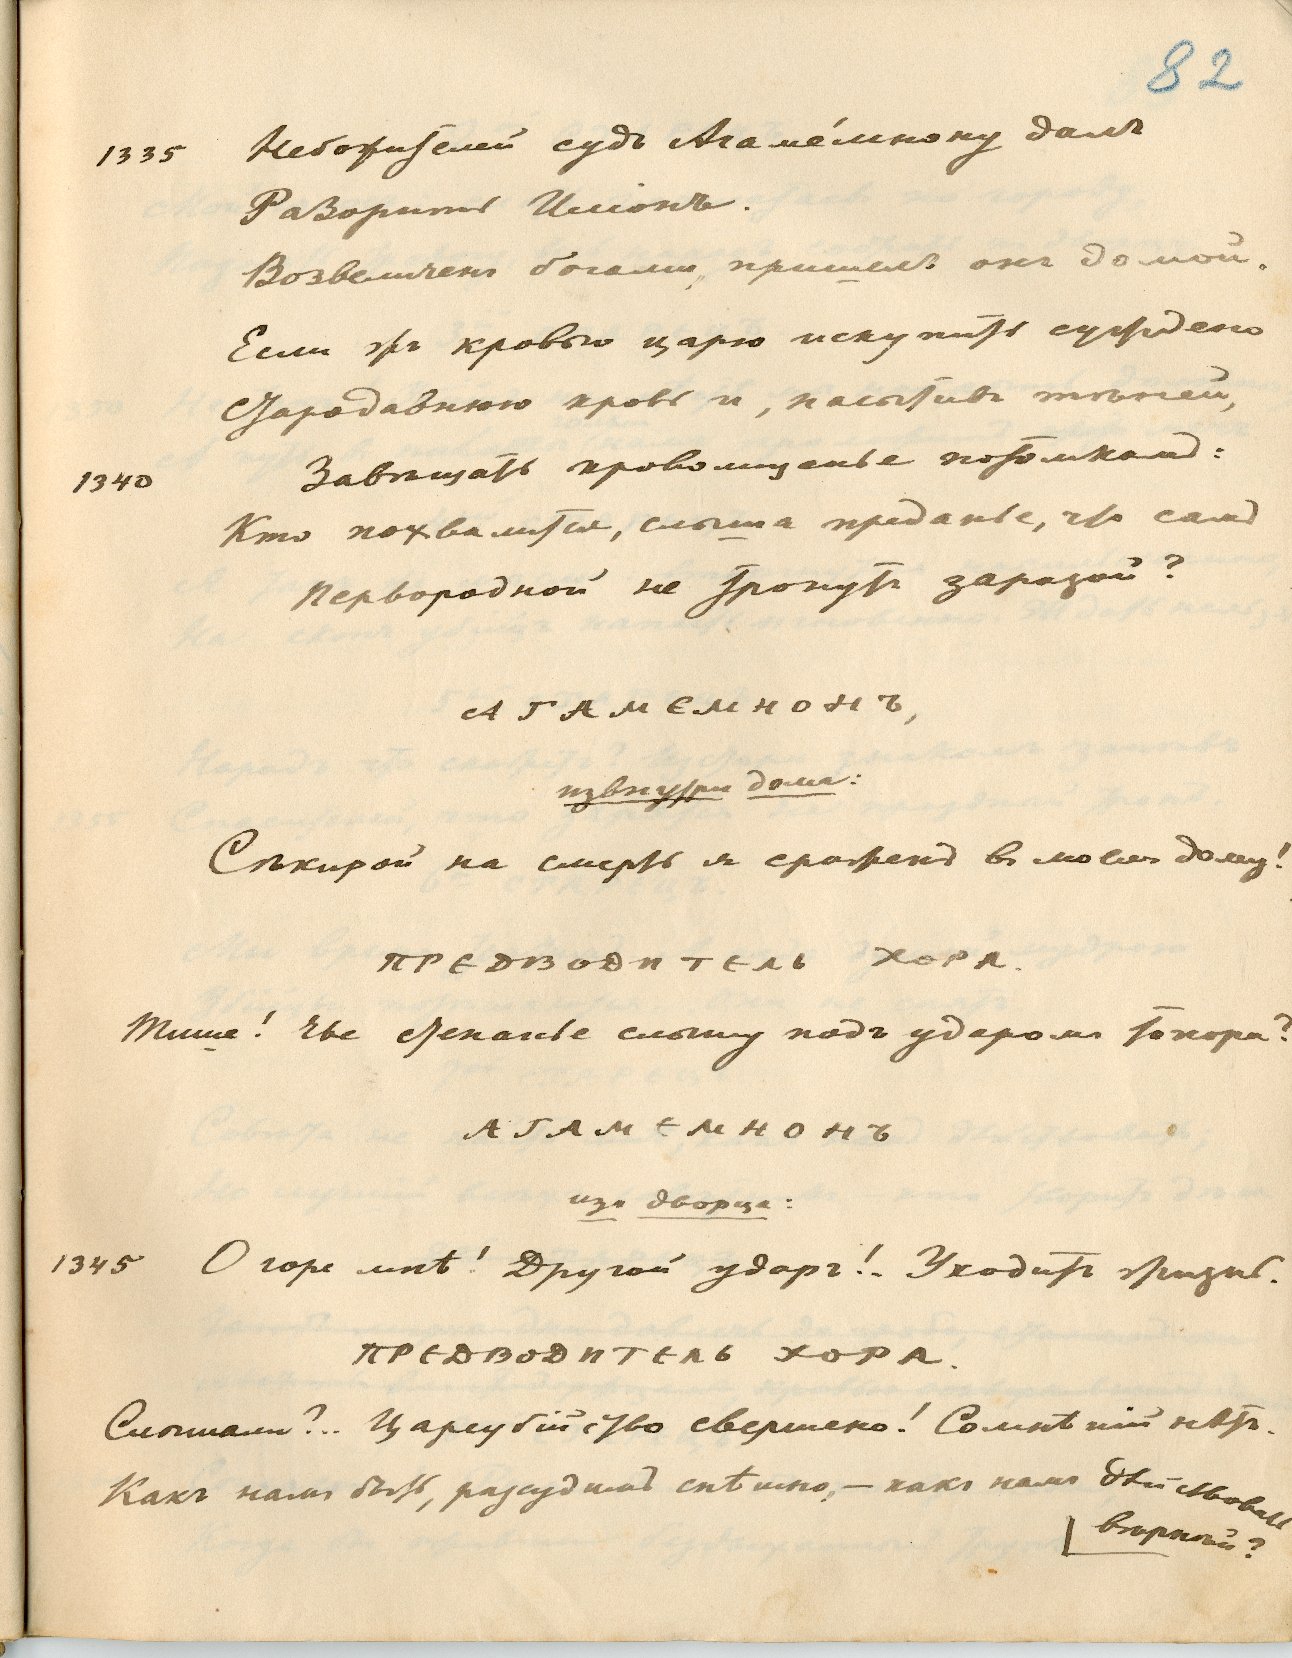 82
1335 Небожителей судъ Агаме́мнону далъ
Разорить Иліонъ.
Возвеличенъ богами, пришелъ онъ домой.
Если жъ кровью царю искупить суждено
Стародавнюю кровь и, насытивъ тѣней,
1340 Завѣщать кровомщенье потомкамъ:
Кто похвалится, слыша преданье, что самъ
Первородной не тронутъ заразой?
АГАМЕМНОНЪ,
извнутри дома:
Сѣкирой на смерть я сраженъ въ моемъ дому!
ПРЕДВОДИТЕЛЬ ХОРА.
Тише! Чье стенанье слышу подъ ударомъ топора?
АГАМЕМНОНЪ
изъ дворца:
1345 О горе мнѣ! Другой ударъ!.. Уходитъ жизнь.
ПРЕДВОДИТЕЛЬ ХОРА.
Слышали?.. Цареубійство свершено! Сомнѣній нѣтъ.
Какъ намъ быть, разсудимъ спѣшно, – какъ намъ дѣйствовать
вѣрнѣй?